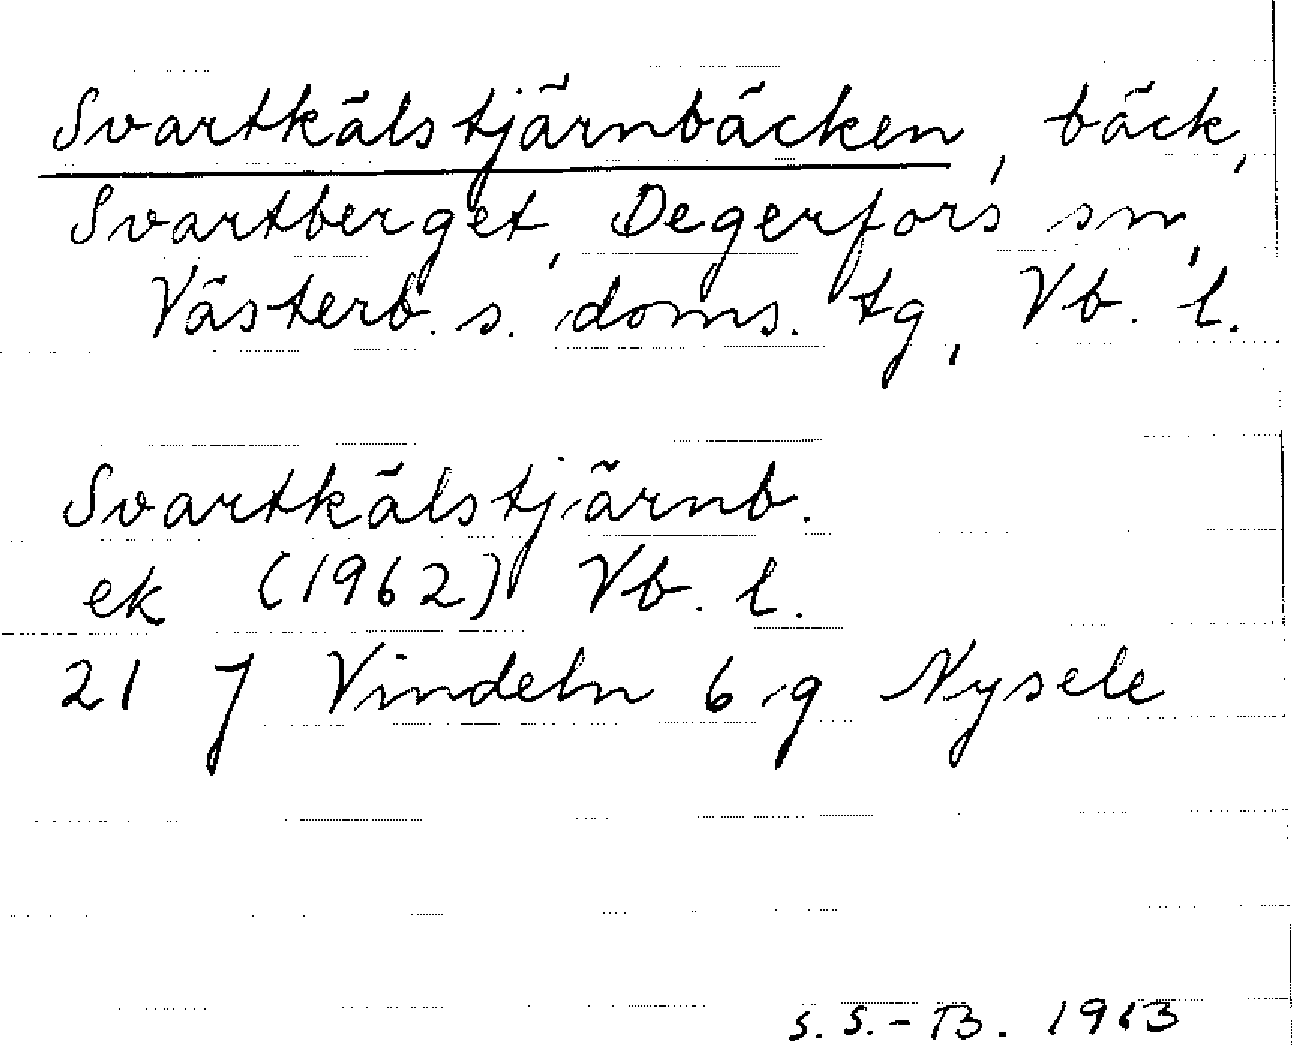 Svartkälstjärnbäcken, bäck,
Svartberget, Degerfors sn,
Västerb. s. doms. tg, Vb. l.
Svartkälstjärnb.
ek (1962) Vb. l.
21 J Vindeln 6 g Nysele
S. S.-B. 1963